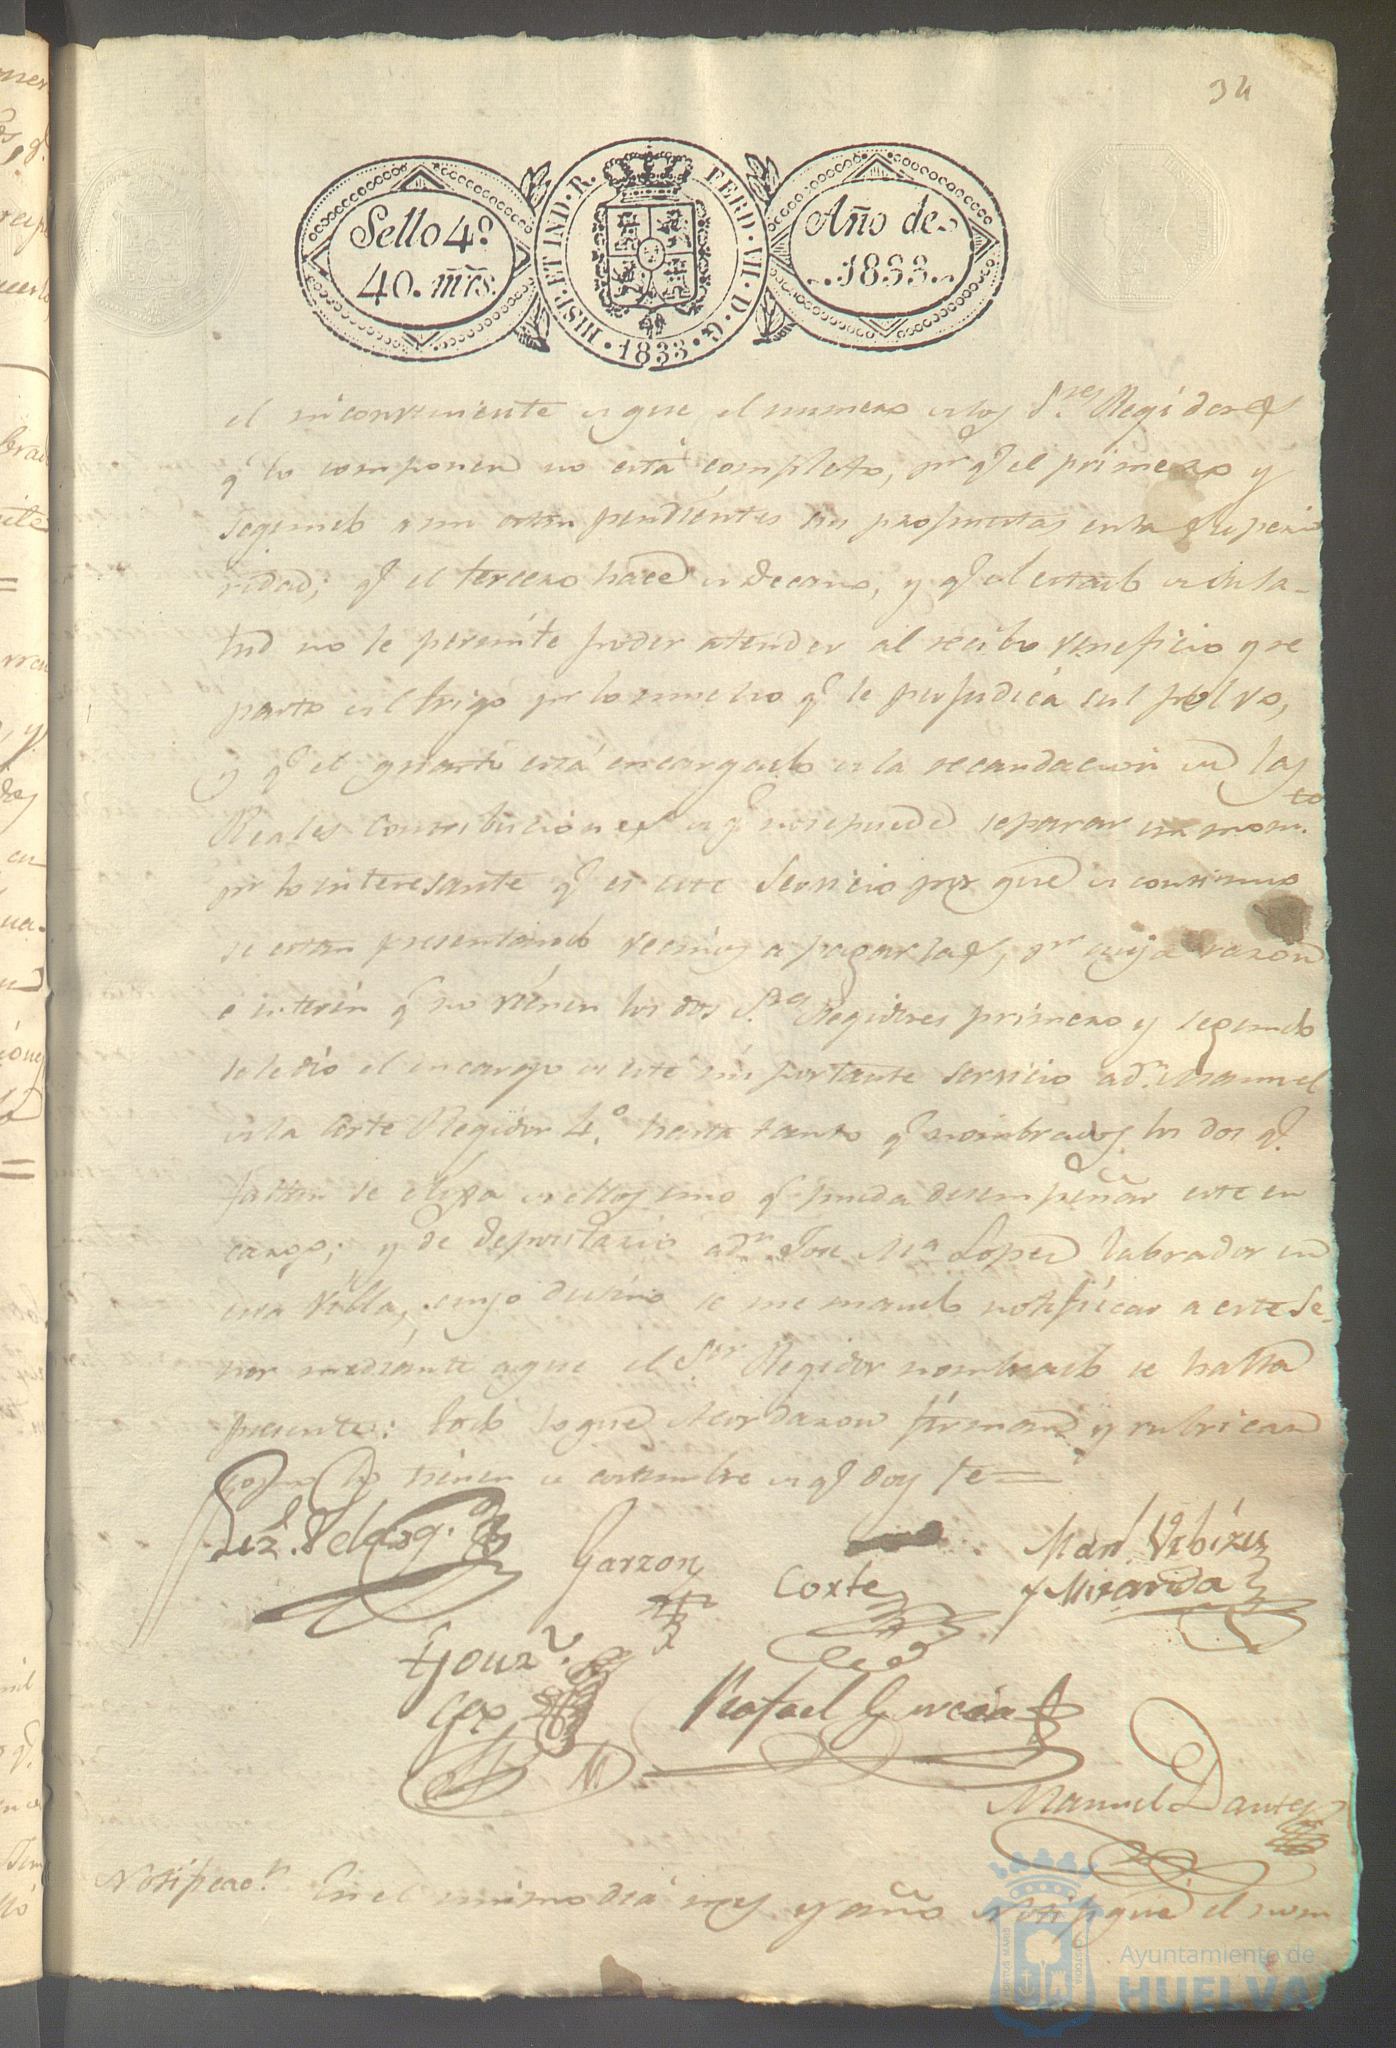 34
Sello 4º
40. mrs.
HISP. ET IND. R. FERD. VII. D. G. 1833.
Año de
1833.
el inconveniente de que el numero de los S.res Regidores
q.e lo componen no está completo, pr. q.e el primero y
segundo aun estan pendientes sus propuestas en la Superio
ridad; q.e el tercero hace de Decano, y q.e el estado de su sa-
lud no le permite poder atender al recibo veneficio y re
parto del trigo pr. lo mucho q.e le perjudica el polvo,
y q.e el quarto está encargado de la recaudacion de las
Reales Contribuciones de q.e no se puede separar un mom.to
pr. lo interesante q.e es este Servicio por que de continuo
se estan presentando vecinos a pagarlas, pr. cuya razon
e interin q.e no vienen los dos S.res Regidores primero y segundo
se le dió el encargo de este importante servicio a d.n Manuel
de la Corte Regidor 4.º hasta tanto q.e nombrados los dos q.e
faltan se elixa de ellos uno q.e pueda desempeñar este en
cargo; y de depositario a d.n Jose M.a Lopez labrador en
esta Villa, cuyo destino se me mandó notificar a este Se-
ñor mediante a que el S.or Regidor nombrado se halla
presente: todo lo que acordaron firman y rubrican
como lo tienen de costumbre de q.e doy fe=
Garzon
Corte
Man.l Vibizes
y Miranda
Gonz.
Rafael Garcia
Manuel Dante
Notificac.n En el mismo dia mes y año notifiqué el nom
Ayuntamiento de
HUELVA